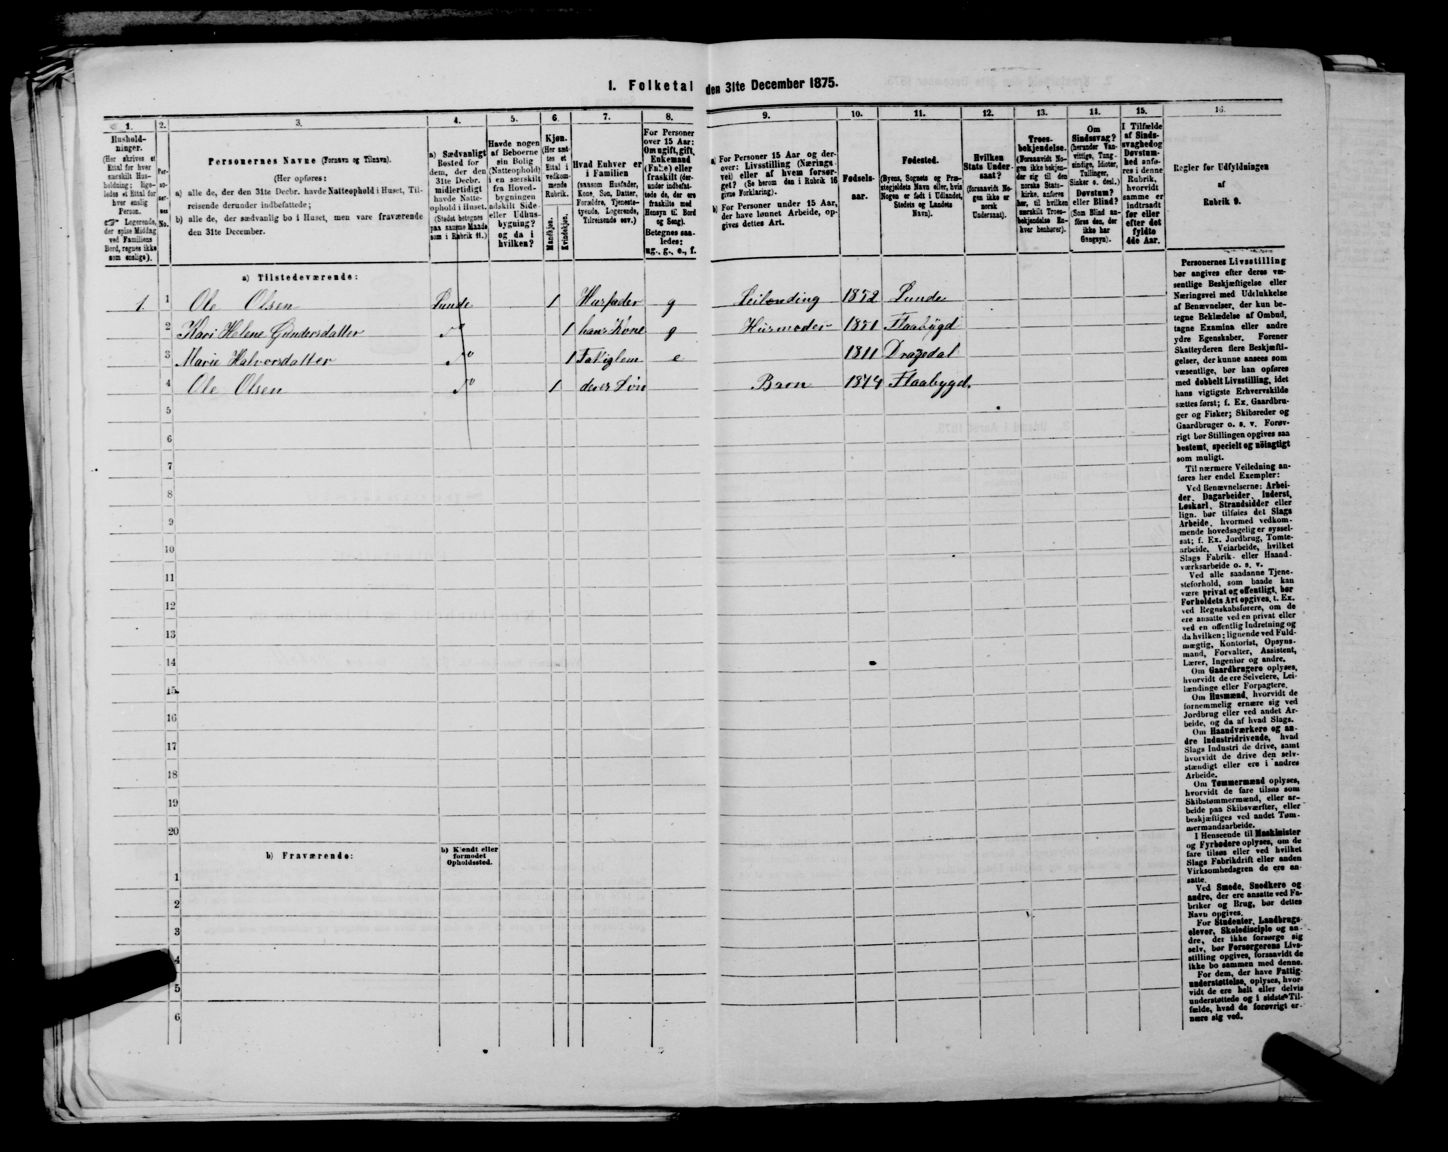 1. Folketal den 31te December 1875.
1. 2. 3. 4. 5. 6. 7. 8. 9. 10. 11. 12. 13. 14. 15. 16.
Hushold-
ninger.
(Her skrives et
Ettal for hver
særskilt Hus-
holdning; lige-
ledes et Ettal for
hver enslig
Person.
Logerende,
der spise Middag
ved Familiens
Bord, regnes ikke
som enslige).
Per-
so-
ner-
nes
No.
Personernes Navne (Fornavn og Tilnavn).
(Her opføres:
a) alle de, der den 31te Decbr. havde Natteophold i Huset, Til-
reisende derunder indbefattede;
b) alle de, der sædvanlig bo i Huset, men vare fraværende
den 31te December.
a) Sædvanligt
Bosted for
dem, der den
31te Decbr.
midlertidigt
havde Natte-
ophold i Huset.
(Stedet betegnes
paa samme Maade
som i Rubrik 11.)
Havde nogen
af Beboerne
sin Bolig
(Natteophold)
i en særskilt
fra Hoved-
bygningen
adskilt Side-
eller Udhus-
bygning?
og da i
hvilken?
Kjøn.
(Her sæt-
tes et
Ettal i
vedkom-
mende
Rubrik.
Mandkjøn.
Kvindekjøn.
Hvad Enhver er
i Familien
(saasom Husfader,
Kone, Søn, Datter,
Forældre, Tjeneste-
tyende, Logerende,
Tilreisende osv.)
For Personer
over 15 Aar:
Om ugift, gift,
Enkemand
(Enke) eller
fraskilt (der-
under indbefat-
tede de, der ere
fraskilte med
Hensyn til Bord
og Seng).
Betegnes saa-
ledes:
ug., g., e., f.
a) For Personer 15 Aar og der-
over: Livsstilling (Nærings-
vei) eller af hvem forsør-
get? (Se herom den i Rubrik 16
givne Forklaring).
b) For Personer under 15 Aar,
der have lønnet Arbeide, op-
gives dettes Art.
Fødsels-
aar.
Fødested.
(Byens, Sognets og Præ-
stegjeldets Navn eller, hvis
Nogen er født i Udlandet,
Stedets og Landets
Navn).
Hvilken
Stats Under-
saat?
(forsaavidt No-
gen ikke er
norsk
Undersaat).
Troes-
bekjendelse.
(Forsaavidt No-
gen ikke bekjen-
der sig til den
norske Stats-
kirke, anføres
her, til hvilken
særskilt Troes-
bekjendelse En-
hver henhører).
Om
Sindssvag?
(herunder Van-
vittige, Tung-
sindige, Idioter,
Tullinger,
Sinker o. desl.)
Døvstum?
eller Blind?
(Som Blind an-
føres den, der
ikke har
Gangsyn).
I Tilfælde
af Sinds-
svaghed og
Døvstum-
hed anfø-
res i denne
Rubrik,
hvorvidt
samme er
indtraadt
før eller
efter det
fyldte
4de Aar.
Regler for Udfyldningen
af
Rubrik 9.
a) Tilstedeværende:
1. 1 Ole Olsen Lunde 1 Husfader g Leilending 1852 Lunde
2 Kari Helene Gundersdatter 1 hans Kone g Husmoder 1851 Flaabygd
3 Marie Halvorsdatter 1 e 1811 Drangedal
4 Ole Olsen 1 deres Søn Barn 1874 Flaabygd.
5
6
7
8
9
10
11
12
13
14
15
16
17
18
19
20
b) Fraværende:
b) Kjendt eller
formodet
Opholdssted.
1
2
3
4
5
6
Personernes Livsstilling
bør angives efter deres væ-
sentlige Beskjæftigelse eller
Næringsvei med Udelukkelse
af Benævnelser, der kun be-
tegne Beklædelse af Ombud,
tagne Examina eller andre
ydre Egenskaber. Forener
Skatteyderen flere Beskjæfti-
gelser, der kunne ansees som
væsentlige, bør han opføres
med dobbelt Livsstilling, idet
hans vigtigste Erhvervskilde
sættes først; f. Ex. Gaardbru-
ger og Fisker; Skibsreder og
Gaardbruger o. s. v. Forøv-
rigt bør Stillingen opgives saa
bestemt, specielt og nöiagtigt
som muligt.
Til nærmere Veiledning an-
føres her endel Exempler:
Ved Benævnelserne: Arbei-
der, Dagarbeider, Inderst,
Løskarl, Strandsidder eller
lign. bør tilføies det Slags
Arbeide, hvormed vedkom-
mende hovedsagelig er syssel-
sat; f. Ex. Jordbrug, Tomte-
arbeide, Veiarbeide, hvilket
Slags Fabrik- eller Haand-
værksarbeide o. s. v.
Ved alle saadanne Tjene-
steforhold, som baade kan
være privat og offentligt, bør
Forholdets Art opgives, t. Ex.
ved Regnskabsførere, om de
ere ansatte ved en privat eller
ved en offentlig Indretning og
da hvilken; lignende ved Fuld-
mægtig, Kontorist, Opsyns-
mand, Forvalter, Assistent,
Lærer, Ingeniør og andre.
Om Gaardbrugere oplyses,
hvorvidt de ere Selveiere, Lei-
lændinge eller Forpagtere.
Om Husmænd, hvorvidt de
fornemmelig ernære sig ved
Jordbrug eller ved andet Ar-
beide, og da af hvad Slags.
Om Haandværkere og an-
dre Industridrivende, hvad
Slags Industri de drive, samt
hvorvidt de drive den selv-
stændigt eller ere i andres
Arbeide.
Om Tømmermænd oplyses,
hvorvidt de fare tilsøs som
Skibstømmermænd, eller ar-
beide paa Skibsværfter, eller
beskjæftiges ved andet Tøm-
mermandsarbeide.
I Henseende til Maskinister
og Fyrbødere oplyses, om de
fare tilsøs eller ved hvilket
Slags Fabrikdrift eller anden
Virksomhedsgren de ere an-
satte.
Ved Smede, Snedkere og
andre, der ere ansatte ved Fa-
briker og Brug, bør dettes
Navn opgives.
For Studenter, Landbrugs-
elever, Skoledisciple og an-
dre, der ikke forsørge sig
selv, bør Forsørgerens Livs-
stilling opgives, forsaavidt de
ikke bo sammen med denne.
For dem, der have Fattig-
understøttelse, oplyses, hvor-
vidt de ere helt eller delvis
understøttede og i sidste Til-
fælde, hvad de forøvrigt er-
nære sig ved.